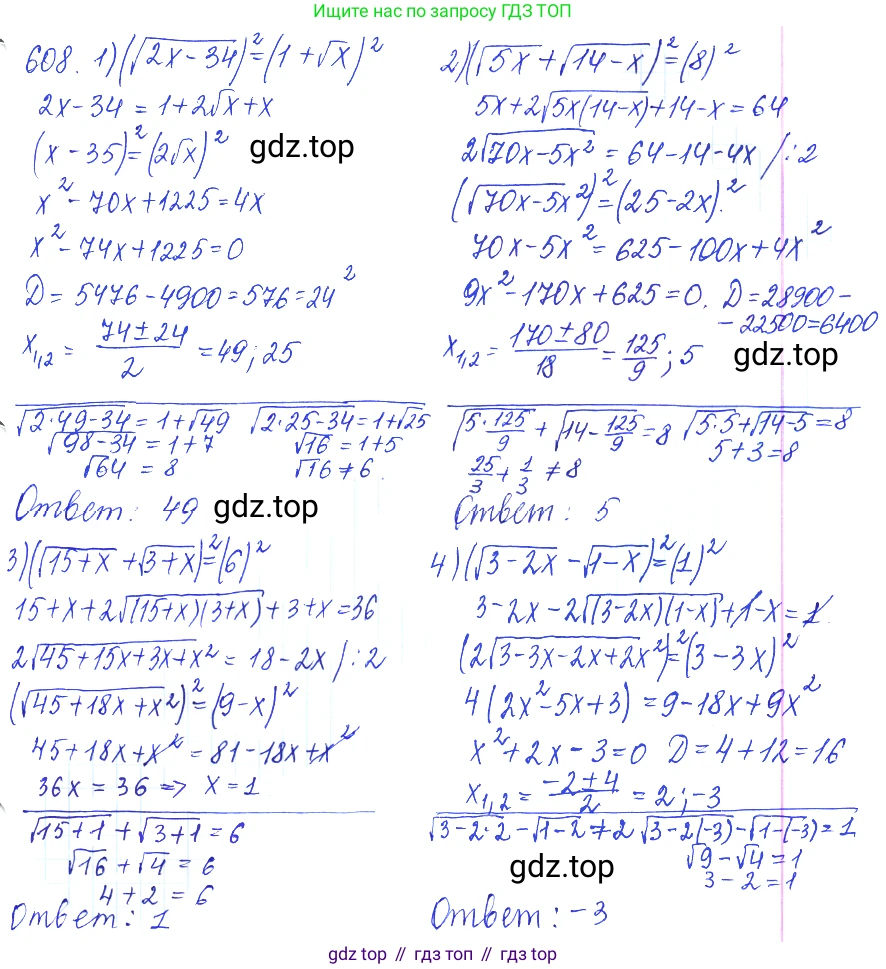 Ищите нас по запросу ГДЗ ТОП
608. 1) (√(2x-34))² = (1+√x)²
2x-34 = 1+2√x+x
(x-35)² = (2√x)²
gdz.top
x²-70x+1225=4x
x²-74x+1225=0
D = 5476-4900=576=24²
x₁,₂ = (74±24)/2 = 49; 25
√(2·49-34) = 1+√49
√(98-34) = 1+7
√64 = 8
√(2·25-34) = 1+√25
√16 = 1+5
√16 ≠ 6.
Ответ: 49
gdz.top
2) (√(5x)+√(14-x))² = (8)²
5x+2√(5x(14-x))+14-x=64
2√(70x-5x²) = 64-14-4x /:2
(√(70x-5x²))² = (25-2x)².
70x-5x² = 625-100x+4x²
9x²-170x+625=0. D=28900-
-22500=6400
x₁,₂ = (170±80)/18 = 125/9; 5
gdz.top
√(5·125/9) + √(14-125/9) = 8
25/3 + 1/3 ≠ 8
√(5·5)+√(14-5) = 8
5+3=8
Ответ: 5
3) (√(15+x)+√(3+x))² = (6)²
15+x+2√((15+x)(3+x))+3+x=36
2√(45+15x+3x+x²) = 18-2x /:2
(√(45+18x+x²))² = (9-x)²
45+18x+x² = 81-18x+x²
36x = 36 => x=1
√(15+1) + √(3+1) = 6
√16 + √4 = 6
4+2 = 6
Ответ: 1
4) (√(3-2x)-√(1-x))² = (1)²
3-2x-2√((3-2x)(1-x))+1-x=1.
(2√(3-3x-2x+2x²))² = (3-3x)²
4(2x²-5x+3) = 9-18x+9x²
x²+2x-3=0 D=4+12=16
x₁,₂ = (-2±4)/2 = 2; -3
√(3-2·2)-√(1-2)≠2
√(3-2(-3))-√(1-(-3))=1
√9-√4=1
3-2=1
gdz.top
Ответ: -3
gdz top // гдз топ // gdz top